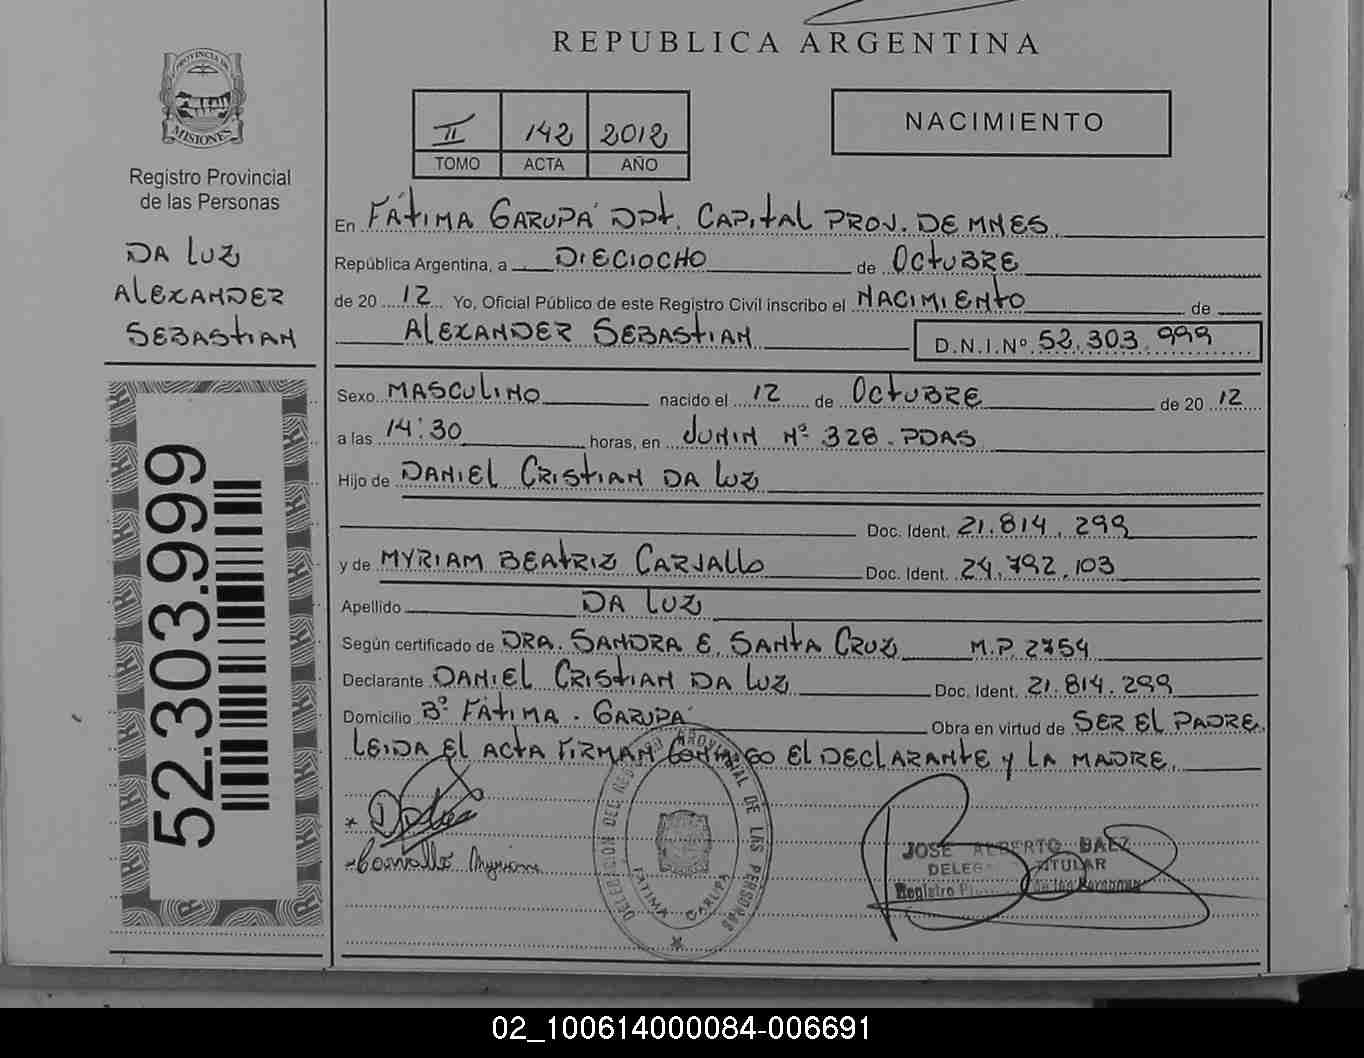 REPUBLICA ARGENTINA
PROVINCIA DE
MISIONES
Registro Provincial
de las Personas
DA LUZ
ALEXANDER
SEBASTIAN
52.303.999
II 142 2012
TOMO ACTA AÑO
NACIMIENTO
En FÁTIMA GARUPÁ DPT. CAPITAL PROV. DE MNES
República Argentina, a DIECIOCHO de OCTUBRE
de 20 12 Yo, Oficial Público de este Registro Civil inscribo el NACIMIENTO de
ALEXANDER SEBASTIAN D.N.I.Nº 52.303.999
Sexo MASCULINO nacido el 12 de OCTUBRE de 20 12
a las 14:30 horas, en JUNIN Nº 328. PDAS
Hijo de DANIEL CRISTIAN DA LUZ
Doc. Ident. 21.814.299
y de MYRIAM BEATRIZ CARVALLO Doc. Ident. 24.792.103
Apellido DA LUZ
Según certificado de DRA. SANDRA E. SANTA CRUZ M.P. 2754
Declarante DANIEL CRISTIAN DA LUZ Doc. Ident. 21.814.299
Domicilio Bº FÁTIMA. GARUPÁ Obra en virtud de SER EL PADRE.
LEIDA EL ACTA FIRMAN CONMIGO EL DECLARANTE Y LA MADRE.
Carvallo Myriam
DELEGACION DEL REGISTRO PROVINCIAL DE LAS PERSONAS
FATIMA GARUPA
JOSE ALBERTO BAEZ
TITULAR
Registro de las Personas
02_100614000084-006691